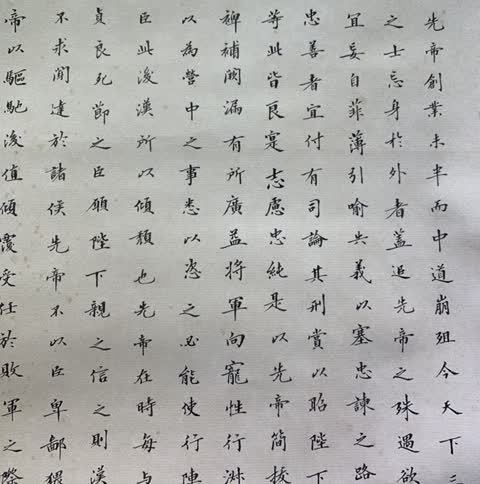 先帝創業未半而中道崩殂今天下三
之士忘身於外者蓋追先帝之殊遇欲
宜妄自菲薄引喻失義以塞忠諫之路
忠善者宜付有司論其刑賞以昭陛下
等此皆良實志慮忠純是以先帝簡拔
裨補闕漏有所廣益將軍向寵性行淑
以為營中之事悉以恣之必能使行陣
臣此後漢所以傾頹也先帝在時每與
貞良死節之臣願陛下親之信之則漢
不求聞達於諸侯先帝不以臣卑鄙猥
帝以驅馳後值傾覆受任於敗軍之際